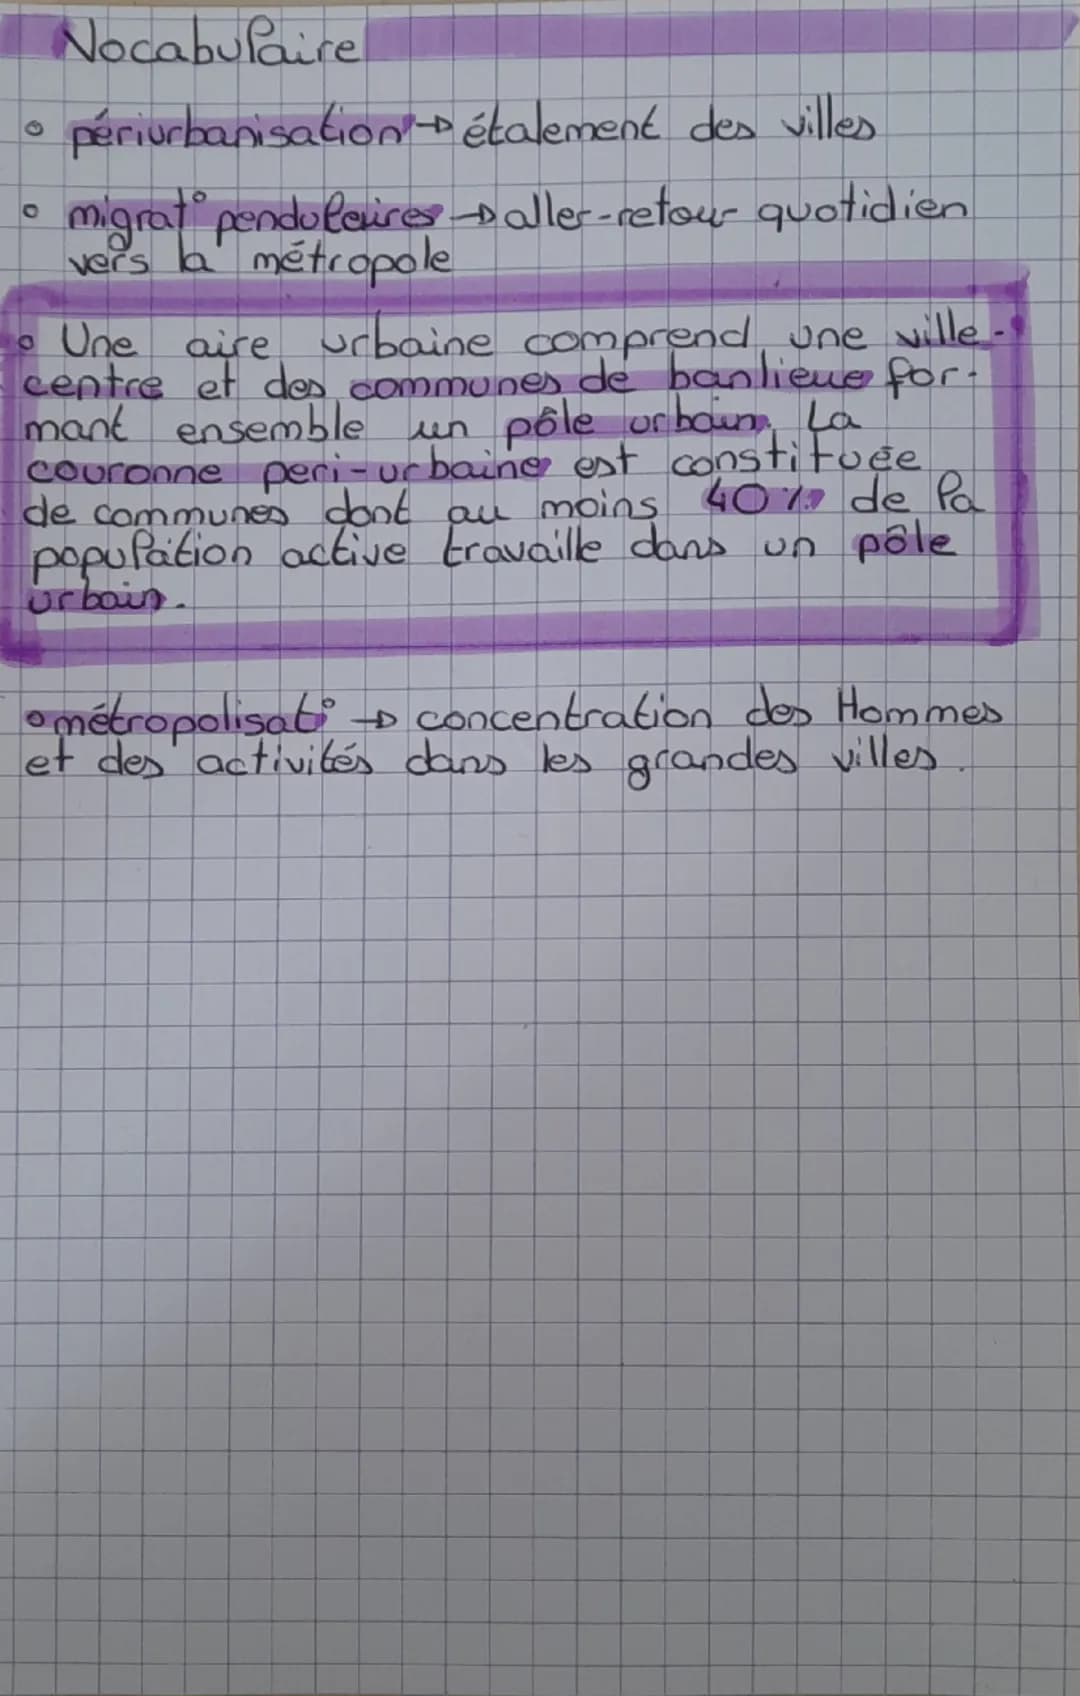 Vocabulaire
périurbanisation → étalement des villes
migrat° pendulaires → aller-retour quotidien
vers la métropole
Une aire urbaine comprend une ville-
centre et des communes de banlieue for-
mant ensemble un pôle urbain. La
couronne peri-urbaine est constituée
de communes dont au moins 40% de la
population active travaille dans un pôle
urbain.
métropolisat° → concentration des Hommes
et des activités dans les grandes villes.